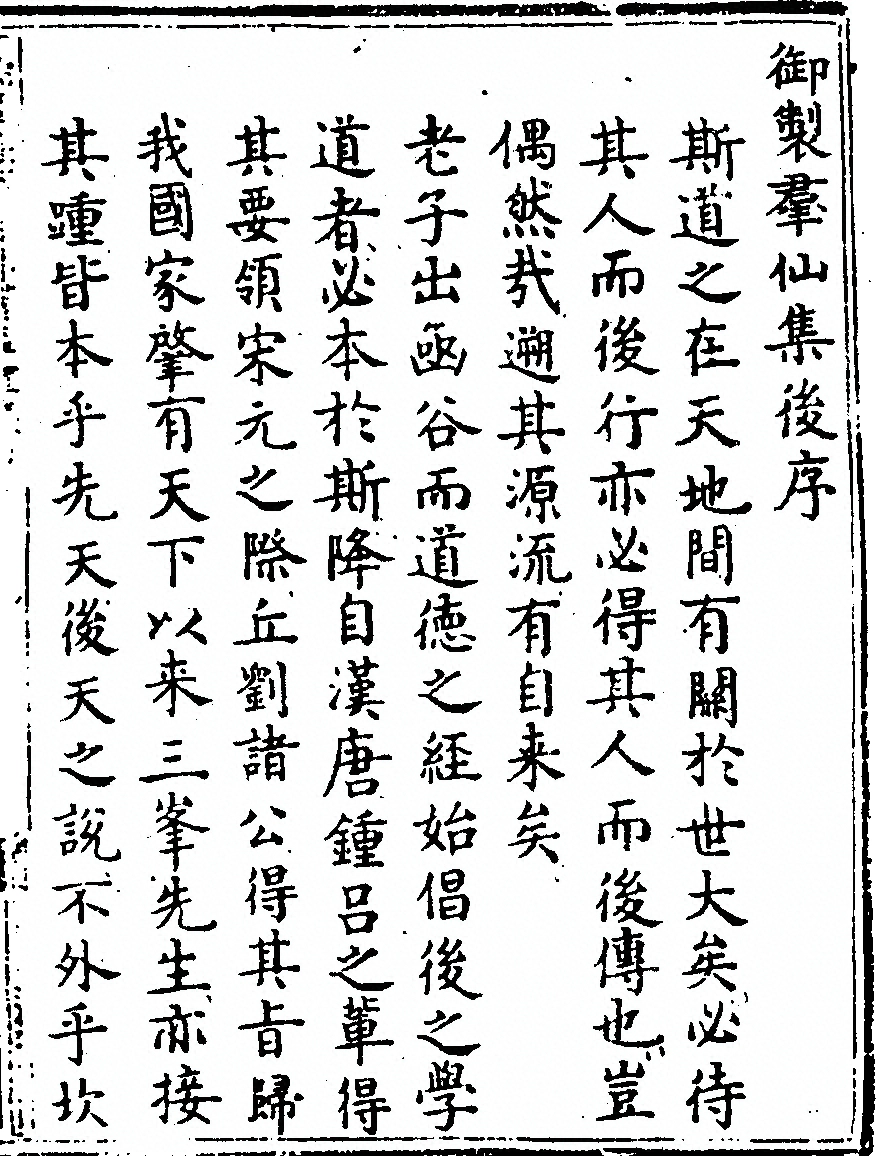 御製羣仙集後序
斯道之在天地間有關於世大矣必待
其人而後行亦必得其人而後傳也豈
偶然㢤遡其源流有自来矣
老子出凾谷而道徳之経始倡後之學
道者必本於斯降自漢唐鍾呂之軰得
其要領宋元之際丘劉諸公得其㫖歸
我國家肇有天下以来三峯先生亦接
其踵皆本乎先天後天之説不外乎坎